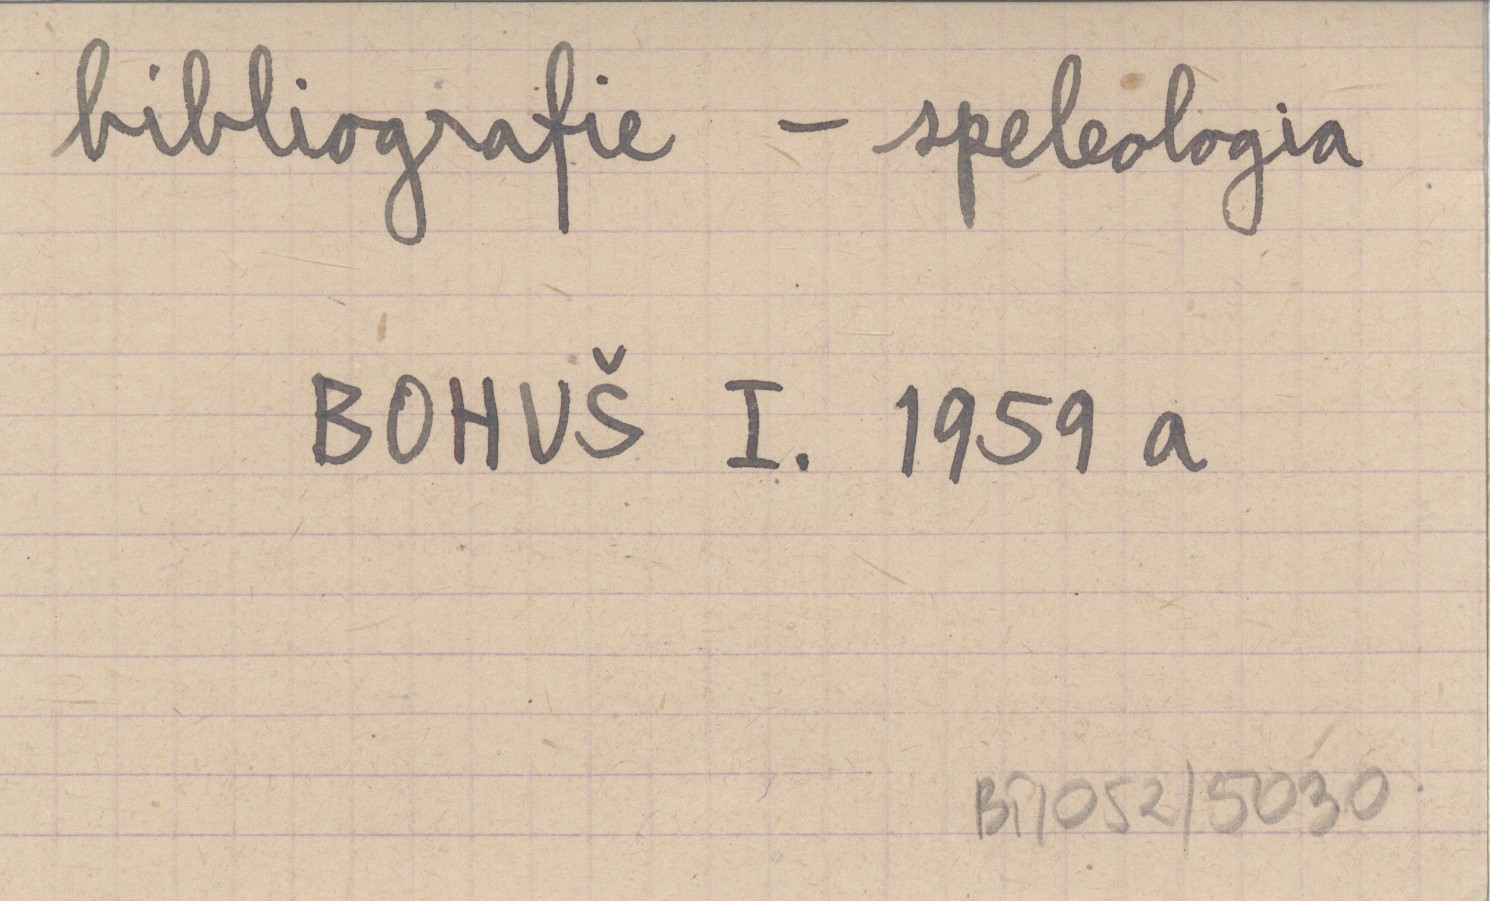 bibliografie - speleologia
BOHUŠ I. 1959 a
BI/052/5030